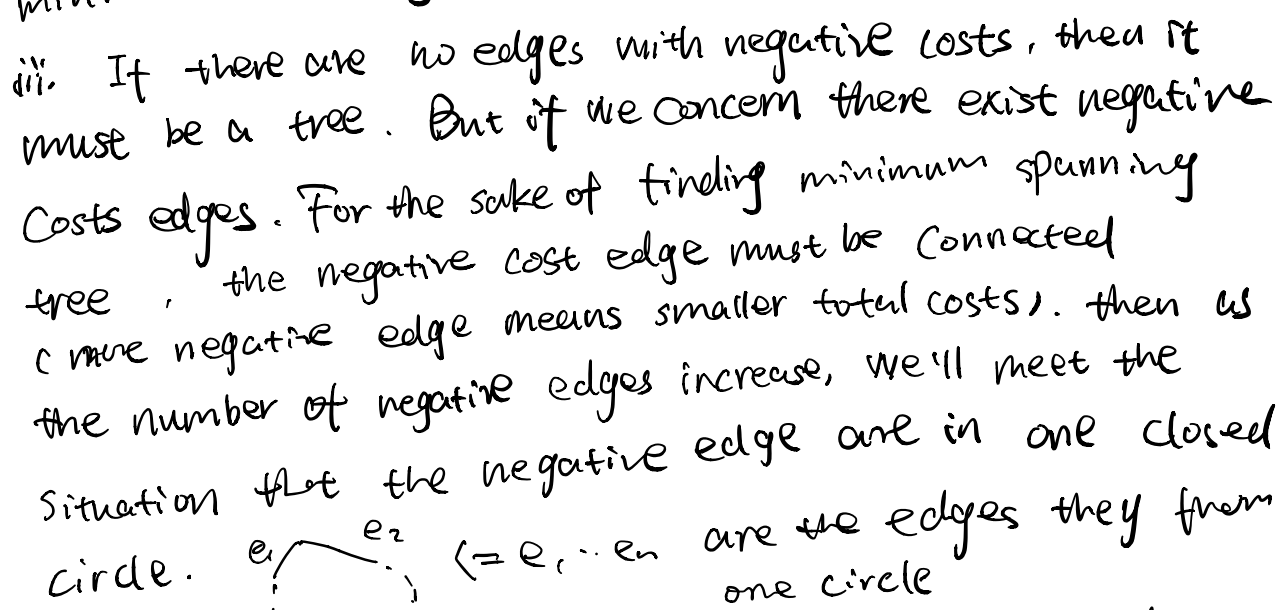 iii. If there are no edges with negative costs, then it
must be a tree. But if we concern there exist negative
costs edges. For the sake of finding minimum spanning
tree, the negative cost edge must be connected
(more negative edge means smaller total costs). then as
the number of negative edges increase, we'll meet the
situation that the negative edge are in one closed
circle. e1 e2 <= e1 ·· en are the edges they from
one circle